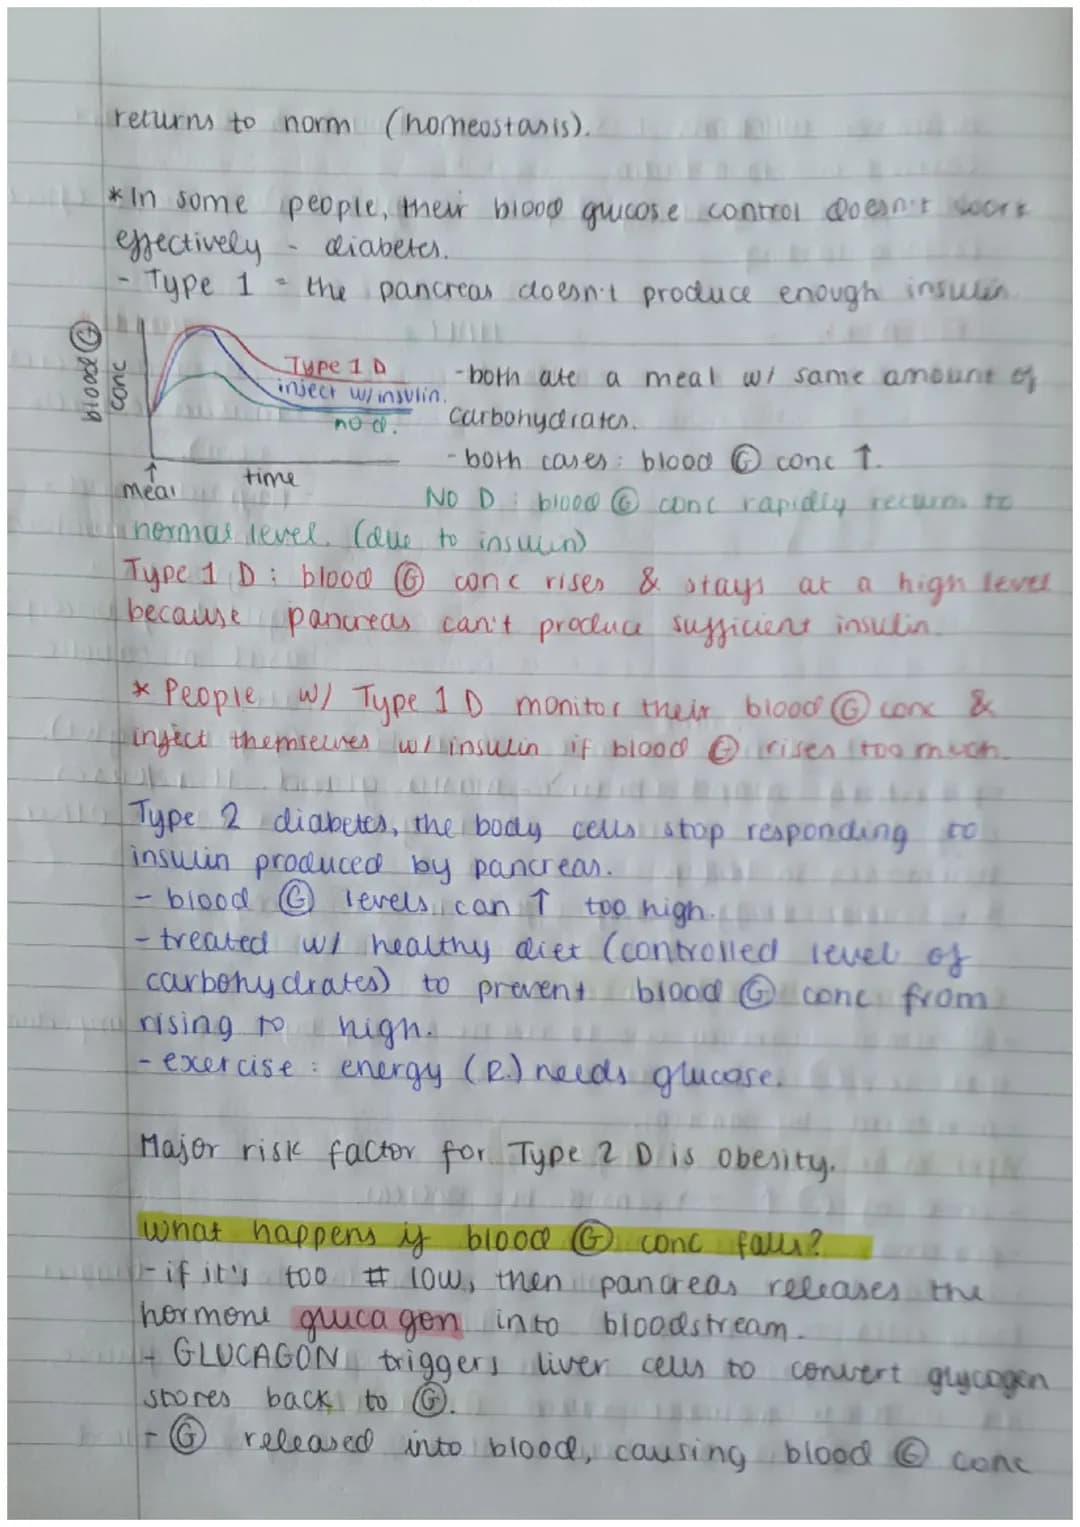 returns to norm (homeostasis).
* In some people, their blood glucose control doesn't work
effectively - diabetes.
- Type 1 - the pancreas doesn't produce enough insulin
blood Ⓖ
conc
Type 1 D
inject w/ insulin.
no d.
time
meal
- both ate a meal w/ same amount of
carbohydrates.
- both cases: blood Ⓖ conc ↑.
NO D: blood Ⓖ conc rapidly returns to
normal level. (due to insulin)
Type 1 D: blood Ⓖ conc rises & stays at a high level
because pancreas can't produce sufficient insulin.
* People w/ Type 1 D monitor their blood Ⓖ conc &
inject themselves w/ insulin if blood Ⓖ rises too much.
Type 2 diabetes, the body cells stop responding to
insulin produced by pancreas.
- blood Ⓖ levels can ↑ too high.
- treated w/ healthy diet (controlled level of
carbohydrates) to prevent blood Ⓖ conc from
rising to high.
- exercise: energy (R.) needs glucose.
Major risk factor for Type 2 D is obesity.
what happens if blood Ⓖ conc falls?
- if it's too # low, then pancreas releases the
hormone glucagon into bloodstream.
- GLUCAGON triggers liver cells to convert glycogen
stores back to Ⓖ.
- Ⓖ released into blood, causing blood Ⓖ conc